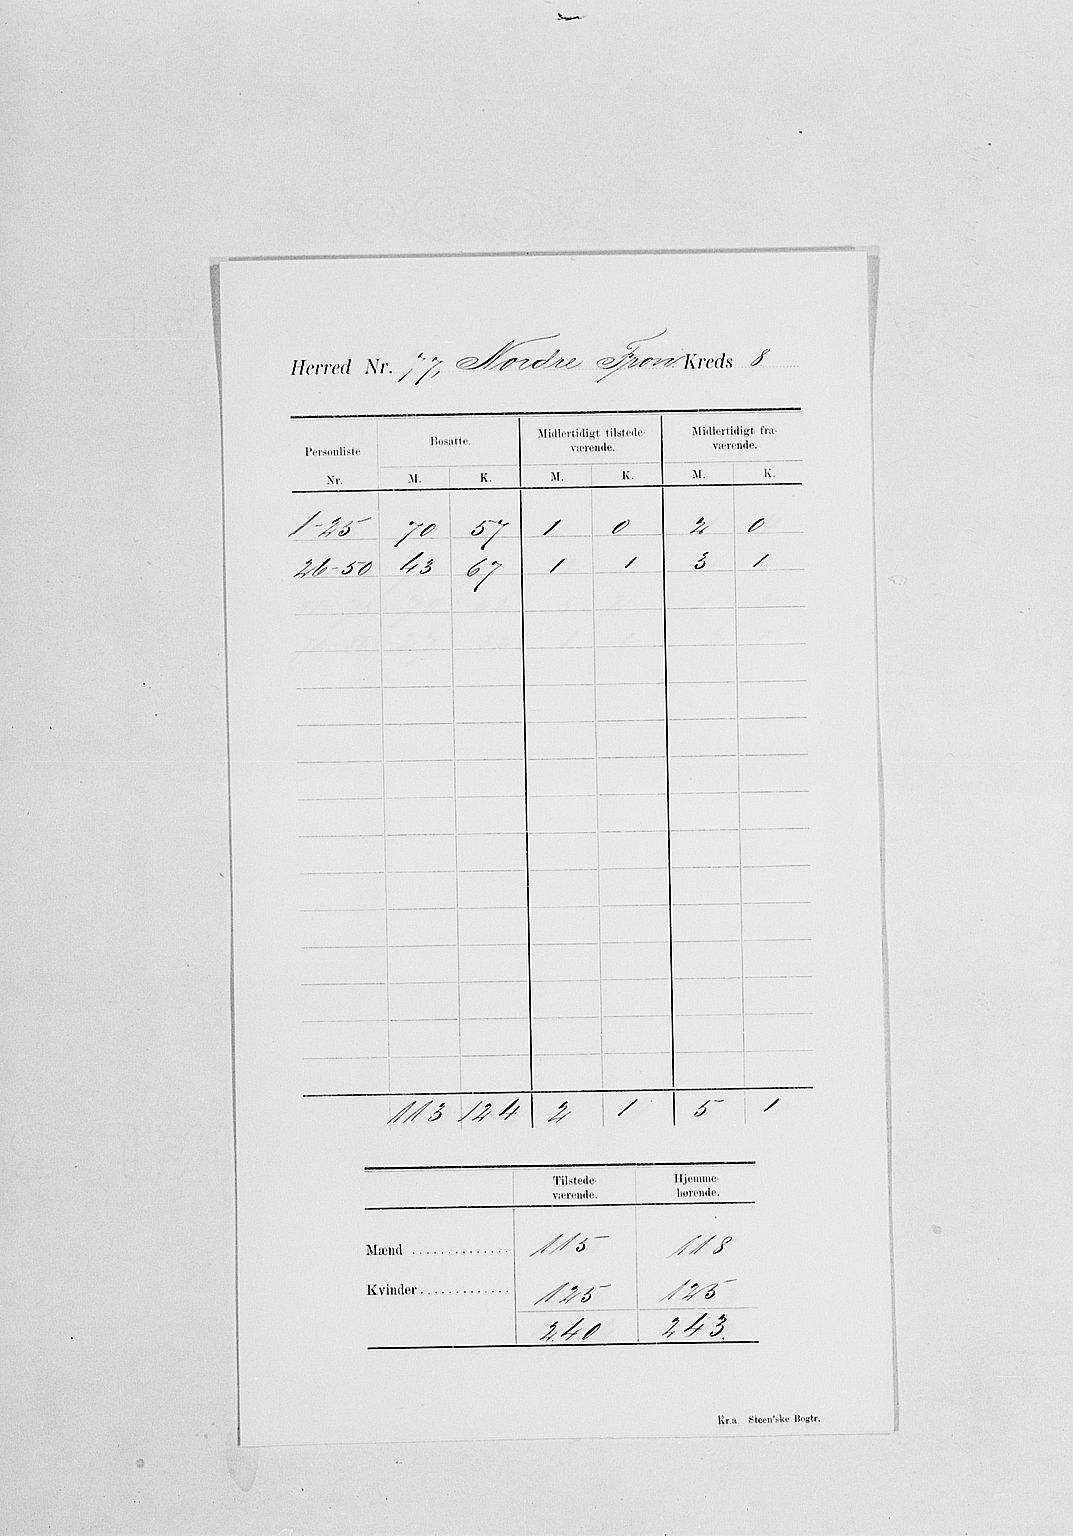 Herred Nr. 77, Nordre Fron. Kreds 8
Personliste Nr. Bosatte. Midlertidigt tilstede- værende. Midlertidigt fra- værende.
M. K. M. K. M. K.
1-25 70 57 1 0 2 0
26-50 43 67 1 1 3 1
113 124 2 1 5 1
Tilstede- værende. Hjemme- hørende.
Mænd .............. 115 118
Kvinder ............. 125 125
240 243
Kr.a Steen'ske Bogtr.